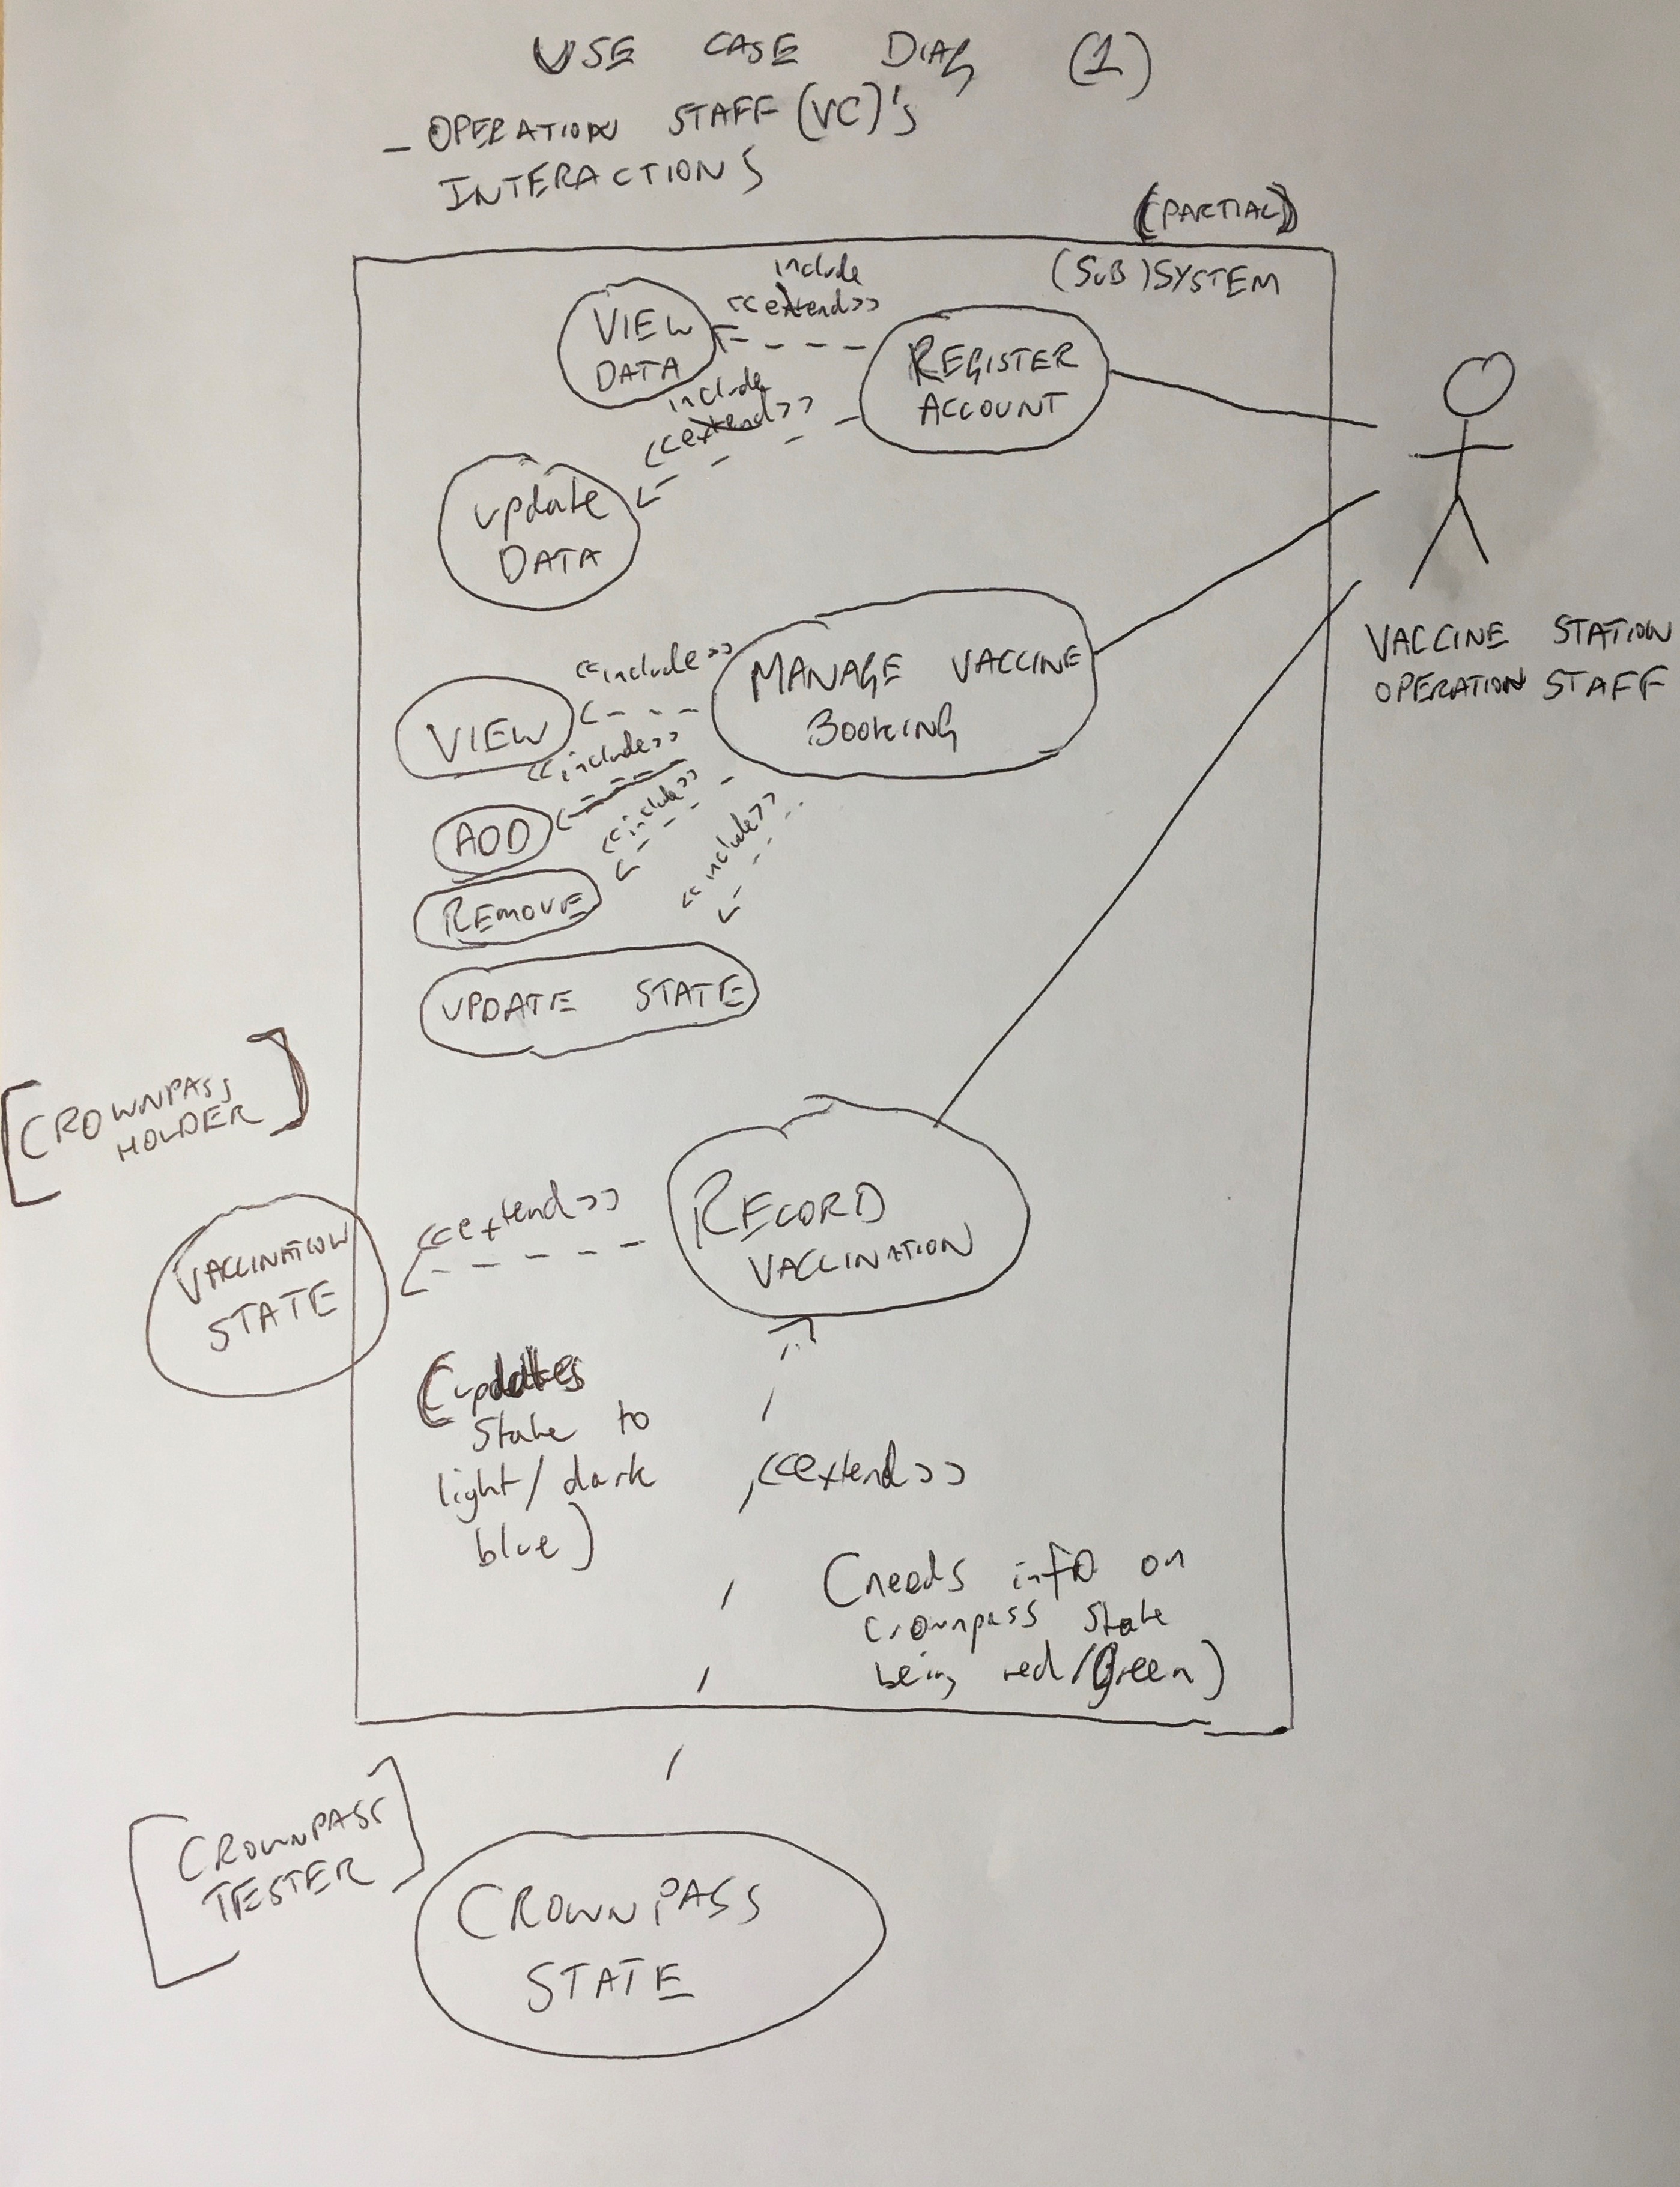 USE CASE DIAG (1)
- OPERATION STAFF (VC)'s
INTERACTIONS
(PARTIAL)
(SUB) SYSTEM
include
<<extend>>
VIEW
DATA
REGISTER
ACCOUNT
include
<<extend>>
update
DATA
VACCINE STATION
OPERATION STAFF
<<include>>
MANAGE VACCINE
BOOKING
VIEW
<<include>>
ADD
<<include>>
REMOVE
<<include>>
UPDATE STATE
[CROWNPASS
HOLDER]
VACCINATION
STATE
<<extend>>
RECORD
VACCINATION
(updates
state to
light/dark
blue)
<<extend>>
(needs info on
crownpass state
being red/Green)
[CROWNPASS
TESTER]
CROWNPASS
STATE